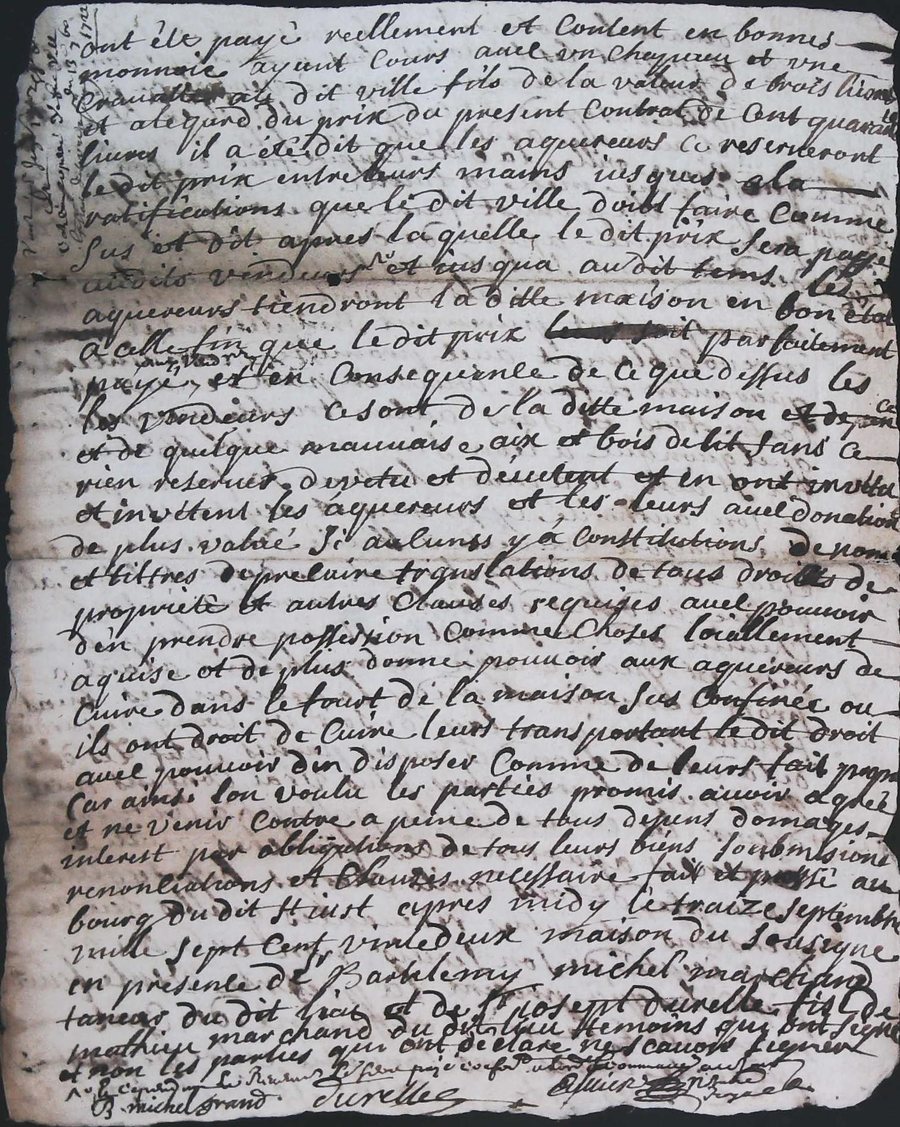 ont été payé réellement et Contênt en bonnes
monnoie ayant Cours avec un chapeau et une
Cravatte au dit ville fils de la valeur de trois livres
et alegard du prix du present Contrat de Cent quarante
livres il a été dit que les aquereurs ce reserveront
le dit prix entre leurs mains iusques a la
ratifications que le dit ville doibt faire Comme
Sus et dit apres laquelle le dit prix Sera payé
audits vendeurs et iusqua audit tems les
aquereurs tiendront la ditte maison en bon état
a celle fin que le dit prix soit parfaitement
payé et en Consequence de ce que dessus les
les vendeurs ce sont de la ditte maison
et de quelque mauvais aix et bois de lit Sans ce
rien reserver devetu et devetent et en ont invêtu
et invetent les aquereurs et les leurs avec donation
de plus value Si aulcunes y a Constitutions de noms
et tittres de precaire translations de tous droits de
propriete et autres Clauses requises avec pouvoir
den prendre possession Comme Choses loiallement
aquise et de plus donne pouvoir aux aquereurs de
Cuire dans le fourt de la maison Sus Confinée ou
ils ont droit de Cuire leurs transportant le dit droit
avec pouvoir d'en disposer Comme de leurs fait propre
Car ainsi lon voulu les parties promis avoir agréé
et ne venir Contre a peine de tous depens domages
interest par obligations de tous leurs biens Soubmisions
renontiations et Clauses necessaire fait et passé au
bourg du dit St iust apres midy le traize Septembre
mille Sept Cent vintedeux maison du Sousigne
en présence de Barthlemy michel marchand
taneur du dit lieu et de Sr iosept durelle fils de
mathieu marchand du dit lieu temoins qui ont Signé
et non les parties qui ont déclaré ne Scavoir Signer
B michel grand Durelle